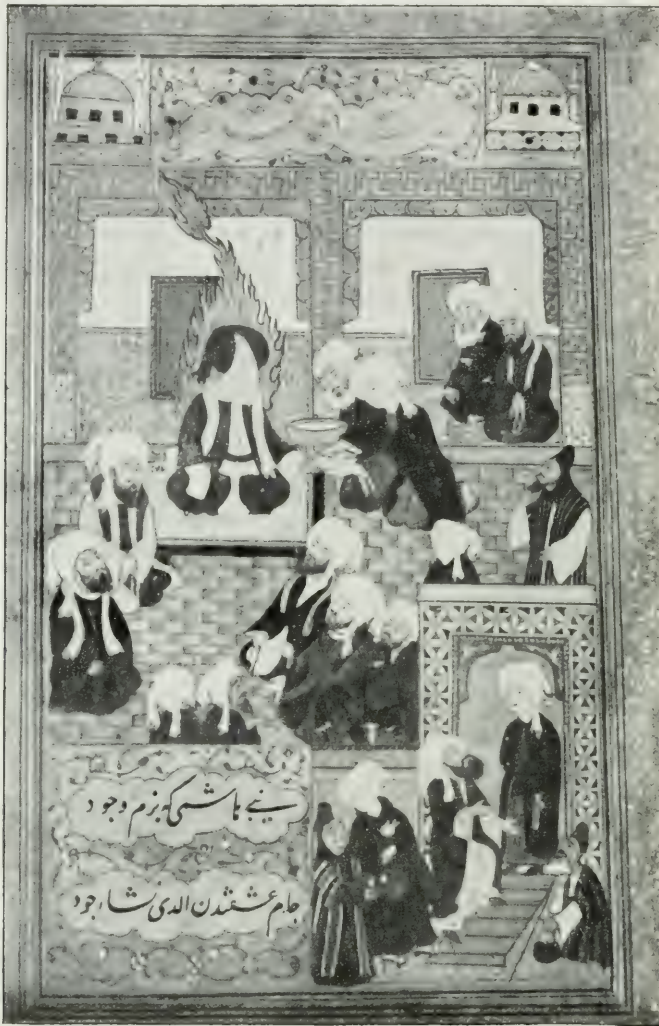 نبئ هاشمی که بزم وجود
جام عشقندن الدی نشاء جود